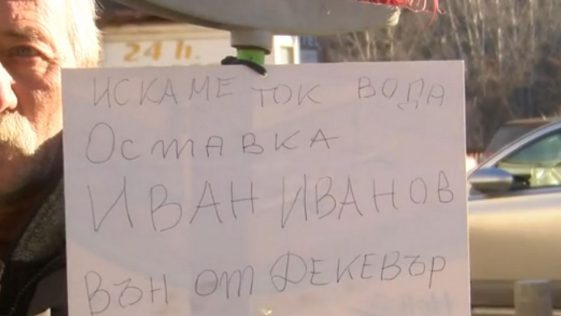 24 h.
ИСКАМЕ ТОК ВОДА
Оставка
ИВАН ИВАНОВ
ВЪН ОТ ДЕКЕВЪР